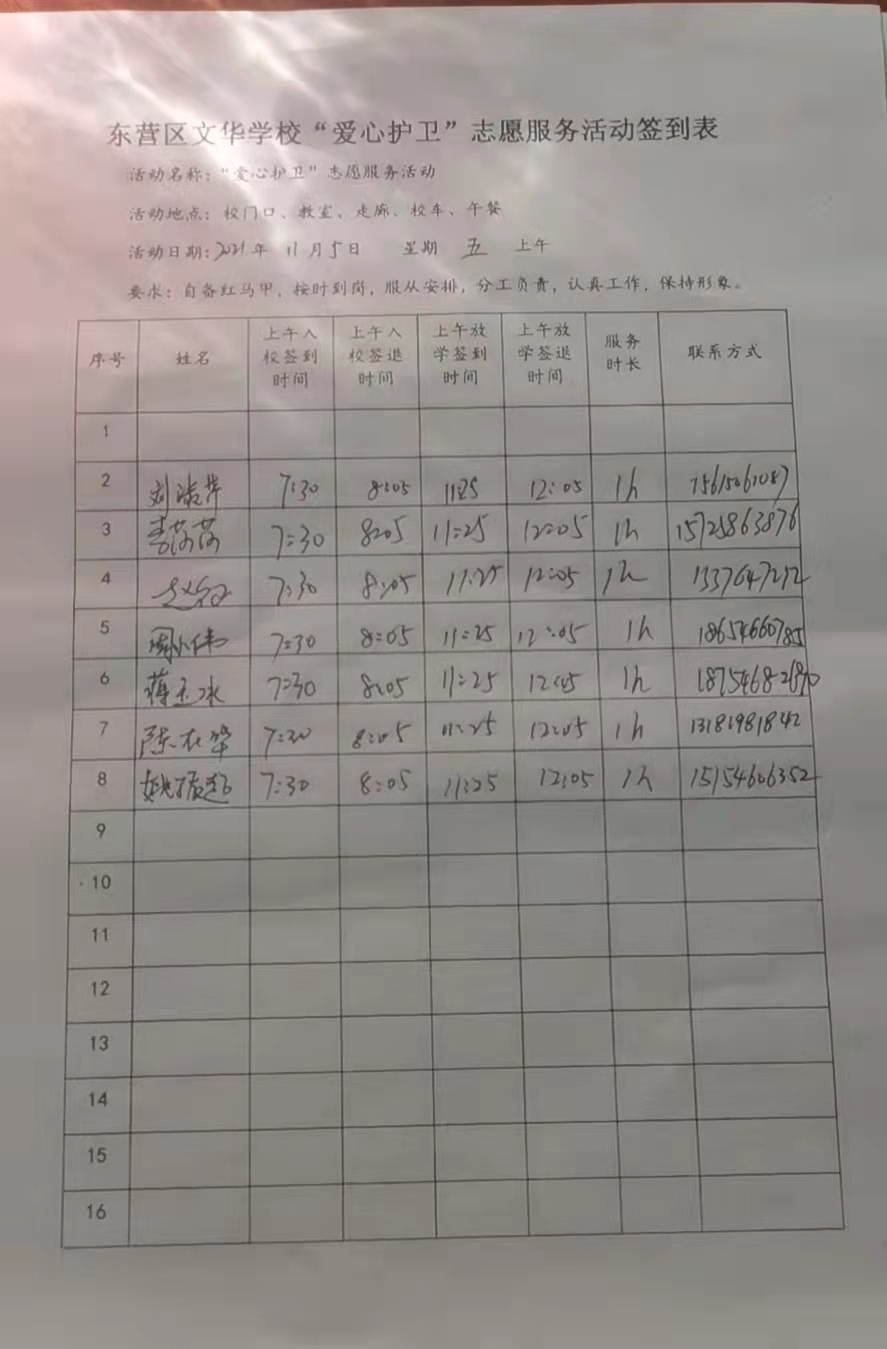 东营区文华学校“爱心护卫”志愿服务活动签到表
活动名称：“爱心护卫”志愿服务活动
活动地点：校门口、教室、走廊、校车、午餐
活动日期：2021年 11月5日 星期 五 上午
要求：自备红马甲，按时到岗，服从安排，分工负责，认真工作，保持形象。
序号 姓名 上午入校签到时间 上午入校签退时间 上午放学签到时间 上午放学签退时间 服务时长 联系方式
1
2 7:30 8:05 11:25 12:05 1h 15615061087
3 李茵茵 7:30 8:05 11:25 12:05 1h 15725863876
4 7:30 8:05 11:25 12:05 1h
5 周小伟 7:30 8:05 11:25 12:05 1h 18654660785
6 蒋玉冰 7:30 8:05 11:25 12:05 1h
7 7:30 8:05 11:25 12:05 1h 13181981842
8 7:30 8:05 11:25 12:05 1h 15154606352
9
10
11
12
13
14
15
16